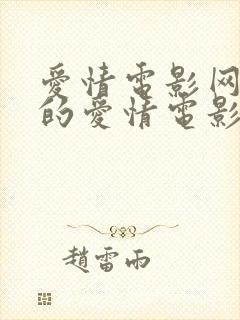 愛情電影网
的愛情電影
趙雷雨